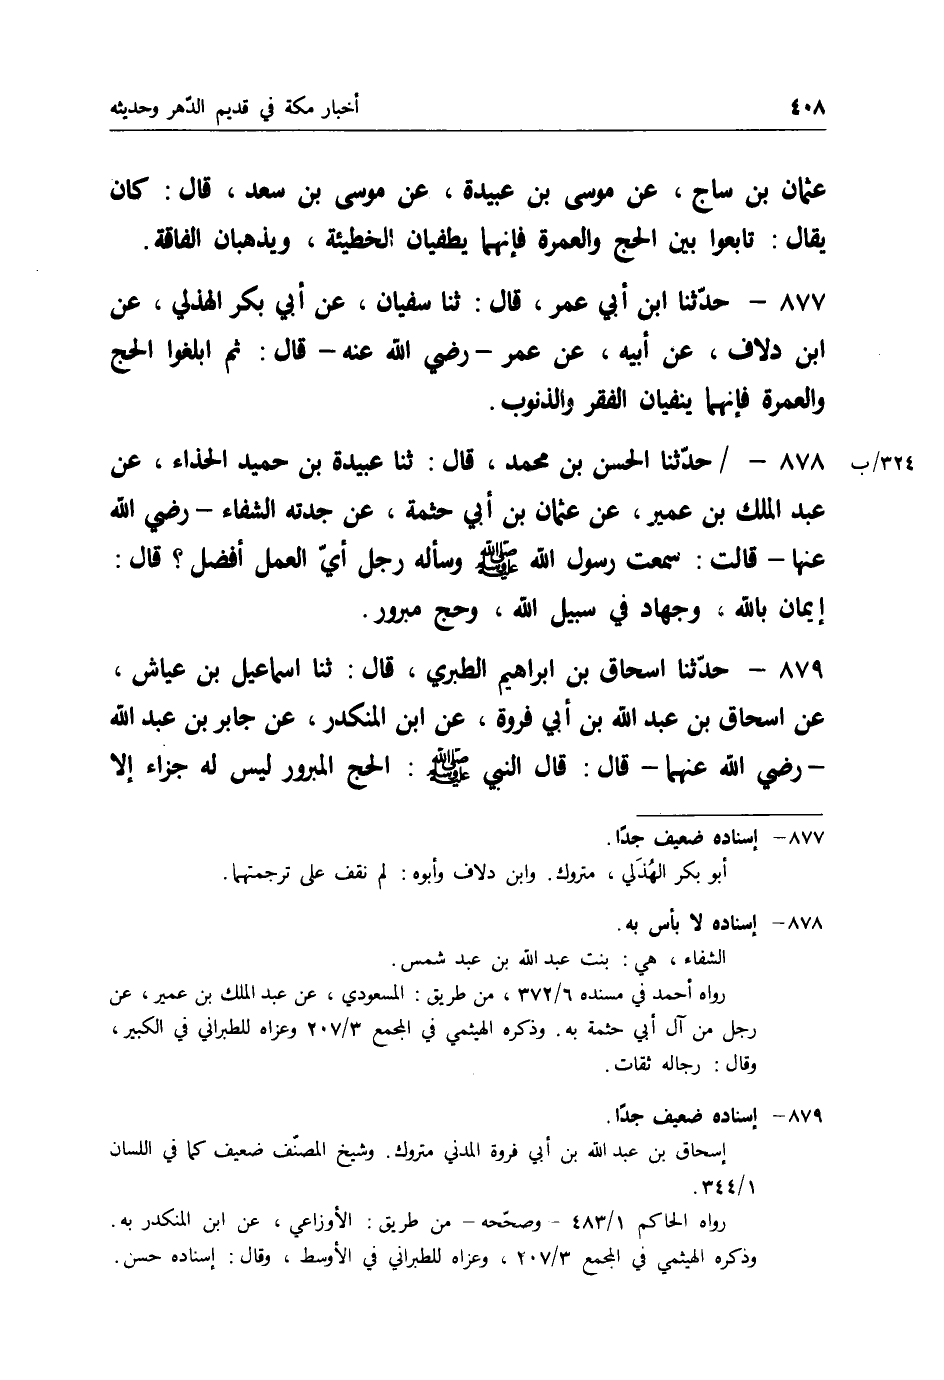 ٤٠٨ أخبار مكة في قديم الدّهر وحديثه
عثمان بن ساج ، عن موسى بن عبيدة ، عن موسى بن سعد ، قال : كان
يقال : تابعوا بين الحج والعمرة فإنهما يطفيان الخطيئة ، ويذهبان الفاقة .
٨٧٧ – حدّثنا ابن أبي عمر ، قال : ثنا سفيان ، عن أبي بكر الهذلي ، عن
ابن دلاف ، عن أبيه ، عن عمر – رضي الله عنه – قال : ثم ابلغوا الحج
والعمرة فإنهما ينفيان الفقر والذنوب .
٨٧٨ – / حدّثنا الحسن بن محمد ، قال : ثنا عبيدة بن حميد الحذاء ، عن ٣٢٤/ب
عبد الملك بن عمير ، عن عثمان بن أبي حثمة ، عن جدته الشفاء – رضي الله
عنها – قالت : سمعت رسول الله ﷺ وسأله رجل أيّ العمل أفضل ؟ قال :
إيمان بالله ، وجهاد في سبيل الله ، وحج مبرور .
٨٧٩ – حدّثنا اسحاق بن ابراهيم الطبري ، قال : ثنا اسماعيل بن عياش ،
عن اسحاق بن عبد الله بن أبي فروة ، عن ابن المنكدر ، عن جابر بن عبد الله
– رضي الله عنهما – قال : قال النبي ﷺ : الحج المبرور ليس له جزاء إلا
٨٧٧– إسناده ضعيف جدًا .
أبو بكر الهُذَلي ، متروك . وابن دلاف وأبوه : لم نقف على ترجمتهما .
٨٧٨– إسناده لا بأس به .
الشفاء ، هي : بنت عبد الله بن عبد شمس .
رواه أحمد في مسنده ٣٧٢/٦ ، من طريق : المسعودي ، عن عبد الملك بن عمير ، عن
رجل من آل أبي حثمة به . وذكره الهيثمي في المجمع ٢٠٧/٣ وعزاه للطبراني في الكبير ،
وقال : رجاله ثقات .
٨٧٩– إسناده ضعيف جدًا .
إسحاق بن عبد الله بن أبي فروة المدني متروك . وشيخ المصنّف ضعيف كما في اللسان
٣٤٤/١ .
رواه الحاكم ٤٨٣/١ – وصحّحه – من طريق : الأوزاعي ، عن ابن المنكدر به .
وذكره الهيثمي في المجمع ٢٠٧/٣ ، وعزاه للطبراني في الأوسط ، وقال : إسناده حسن .